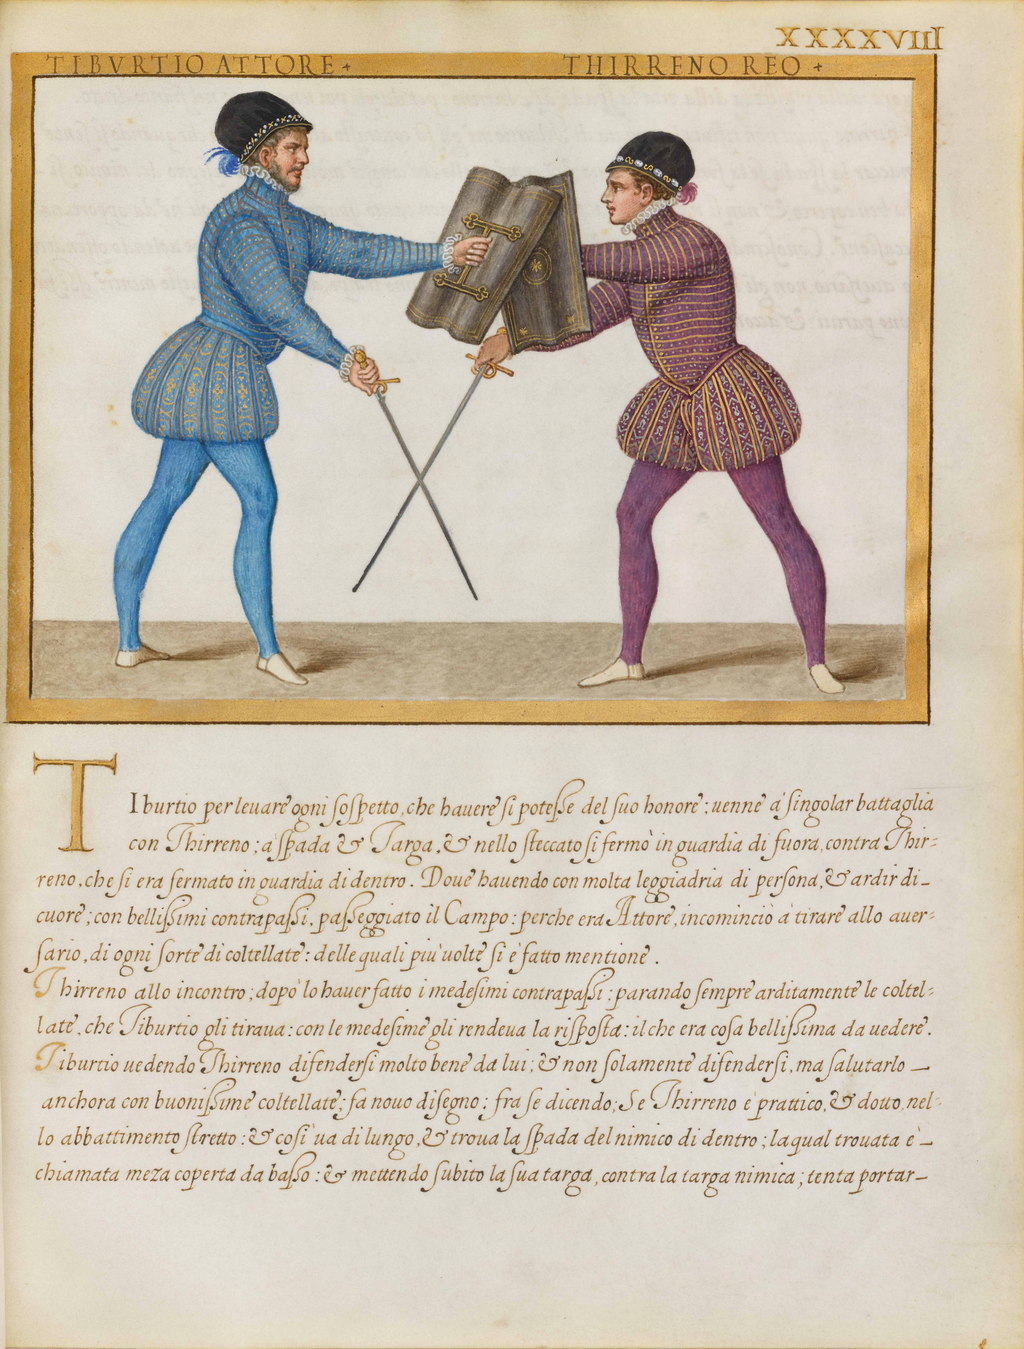 XXXXVIII
TIBVRTIO ATTORE +
THIRRENO REO +
TIburtio per leuare ogni sospetto, che hauere si potesse del suo honore; uenne a singolar battaglia
con Thirreno; a spada & Targa, & nello steccato si fermò in guardia di fuora, contra Thir-
reno, che si era fermato in guardia di dentro. Doue hauendo con molta leggiadria di persona, & ardir di
cuore; con bellissimi contrapassi, passeggiato il Campo: perche era Attore, incominciò à tirare allo auer-
sario, di ogni sorte di coltellate: delle quali più uolte si è fatto mentione.
Thirreno allo incontro; dopò lo hauer fatto i medesimi contrapassi; parando sempre arditamente le coltel-
late, che Tiburtio gli tiraua: con le medesime gli rendeua la risposta: il che era cosa bellissima da uedere.
Tiburtio uedendo Thirreno difendersi molto bene da lui; & non solamente difendersi, ma salutarlo
anchora con buonissime coltellate; fa nouo disegno; fra se dicendo; Se Thirreno è prattico, & dotto, nel-
lo abbattimento stretto: & così ua di lungo, & troua la spada del nimico di dentro; la qual trouata è
chiamata meza coperta da basso: & mettendo subito la sua targa, contra la targa nimica; tenta portar-